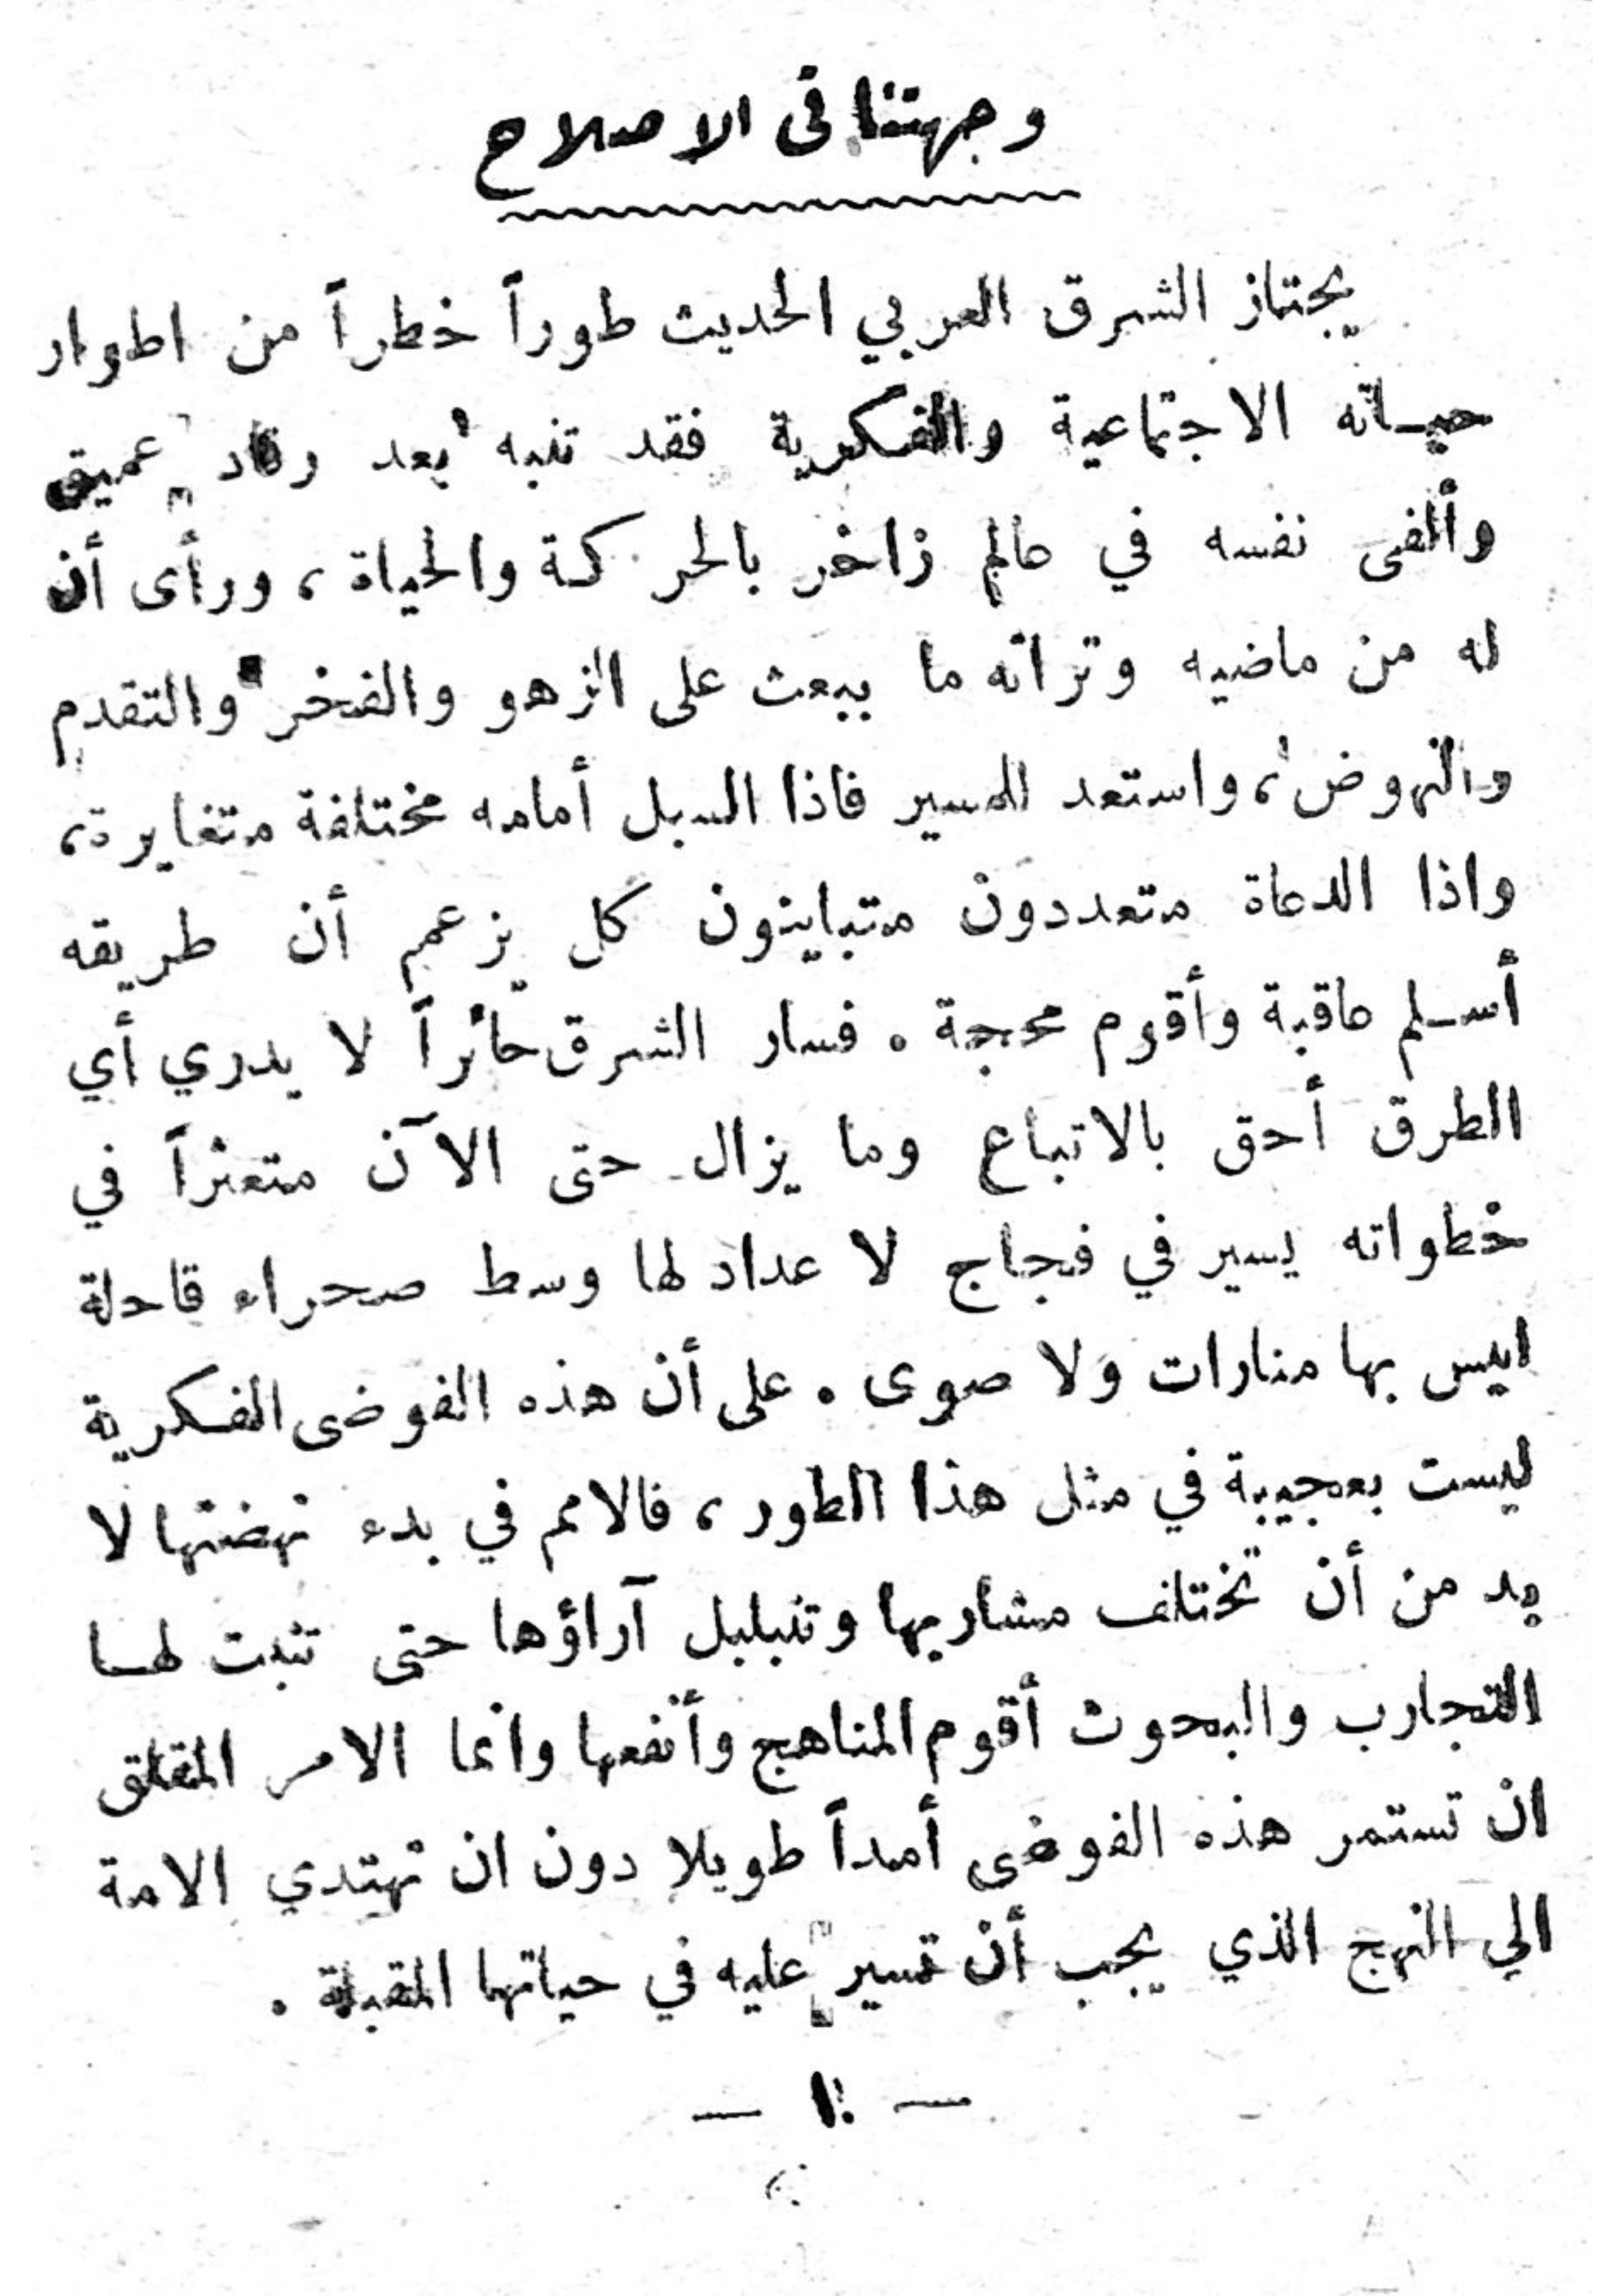 وجهتنا في الاصلاح
يجتاز الشرق العربي الحديث طوراً خطراً من اطوار
حيـاته الاجتماعية والفكرية فقد تنبه بعد رقاد عميق
وألفى نفسه في عالم زاخر بالحركة والحياة ، ورأى أن
له من ماضيه وتراثه ما يبعث على الزهو والفخر والتقدم
والنهوض ، واستعد للمسير فاذا السبل أمامه مختلفة متغايرة ،
واذا الدعاة متعددون متباينون كل يزعم أن طريقه
أسـلم عاقبة وأقوم محجة . فسار الشرق حائراً لا يدري أي
الطرق أحق بالاتباع وما يزال حتى الآن متعثراً في
خطواته يسير في فجاج لا عداد لها وسط صحراء قاحلة
ليس بها منارات ولا صوى . على أن هذه الفوضى الفكرية
ليست بعجيبة في مثل هذا الطور ، فالامم في بدء نهضتها لا
بد من أن تختلف مشاربها وتتبلبل آراؤها حتى تثبت لهـا
التجارب والبحوث أقوم المناهج وأنفعها وانما الامر المقلق
ان تستمر هذه الفوضى أمداً طويلا دون ان تهتدي الامة
الى النهج الذي يجب أن تسير عليه في حياتها المقبلة .
— ١ —